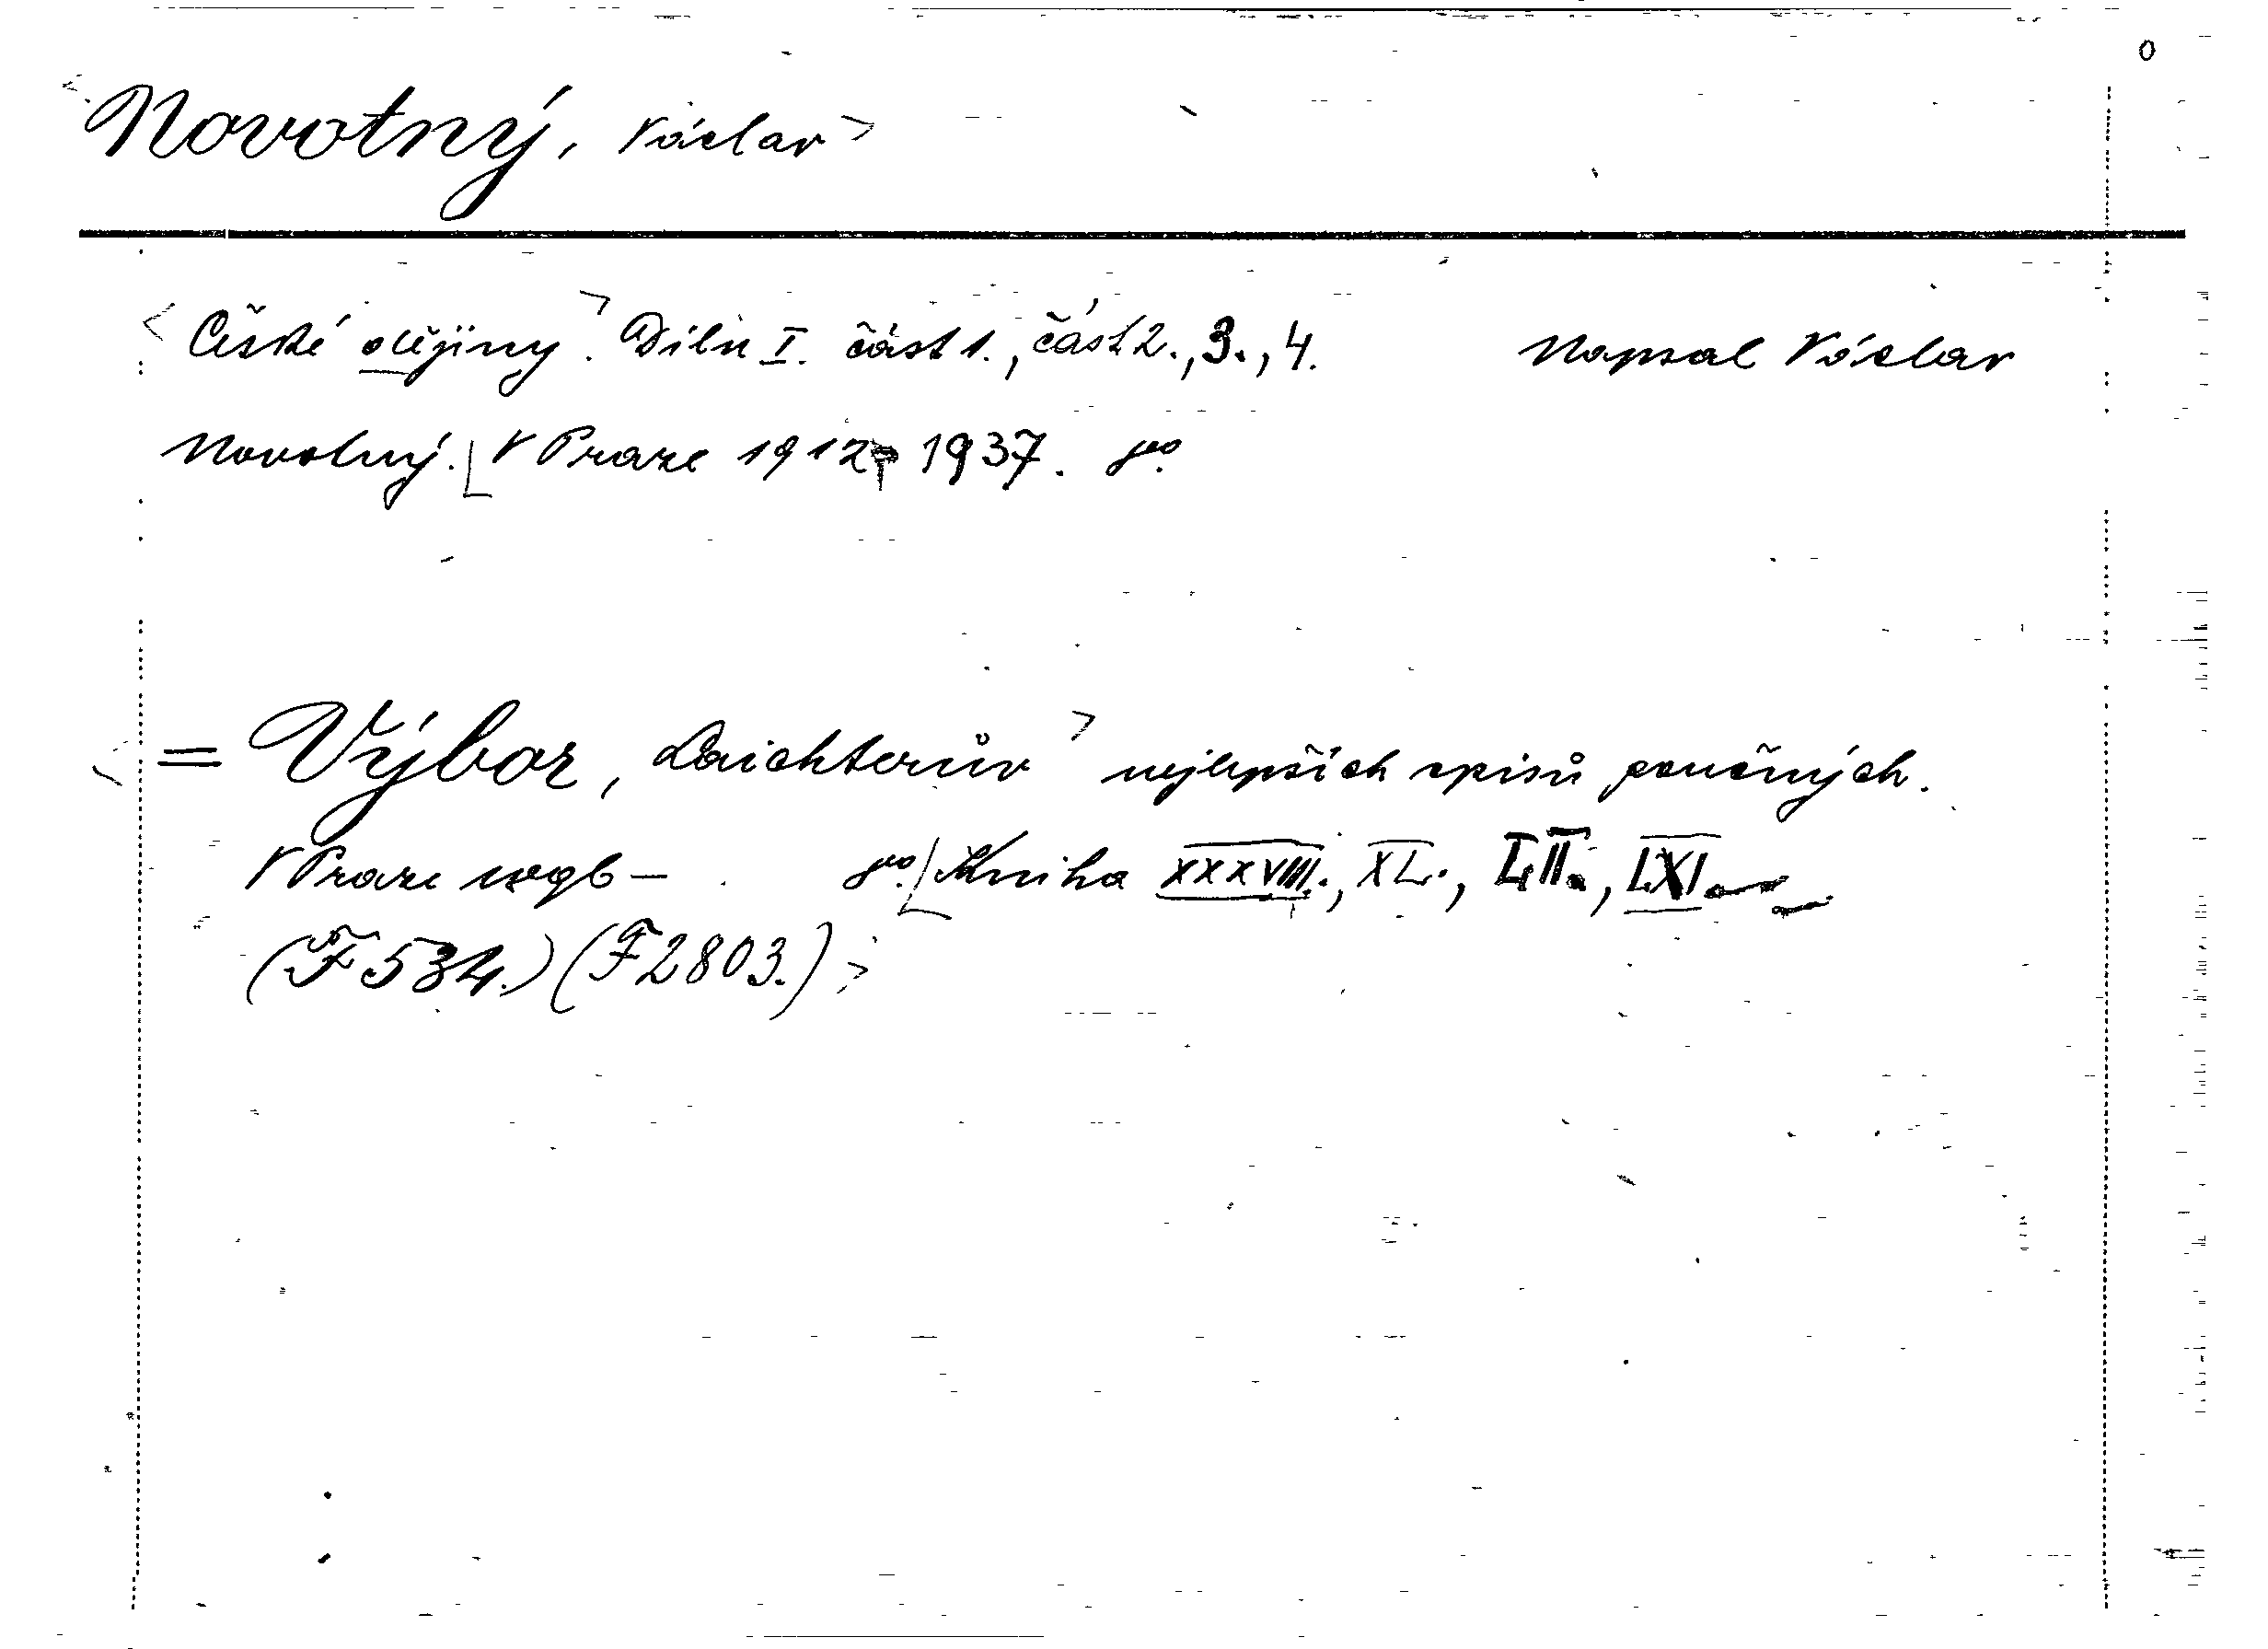 Novotný, Václav
České dějiny. Dílu I. část 1., část 2., 3., 4. Napsal Václav
Novotný. V Praze 1912-1937. 8vo.
= Výbor, Laichterův nejlepších spisů poučných.
V Praze 1896- . 8vo. Kniha XXXVIII., XL., LII., LXI.
(F 534.) (F 2803.)